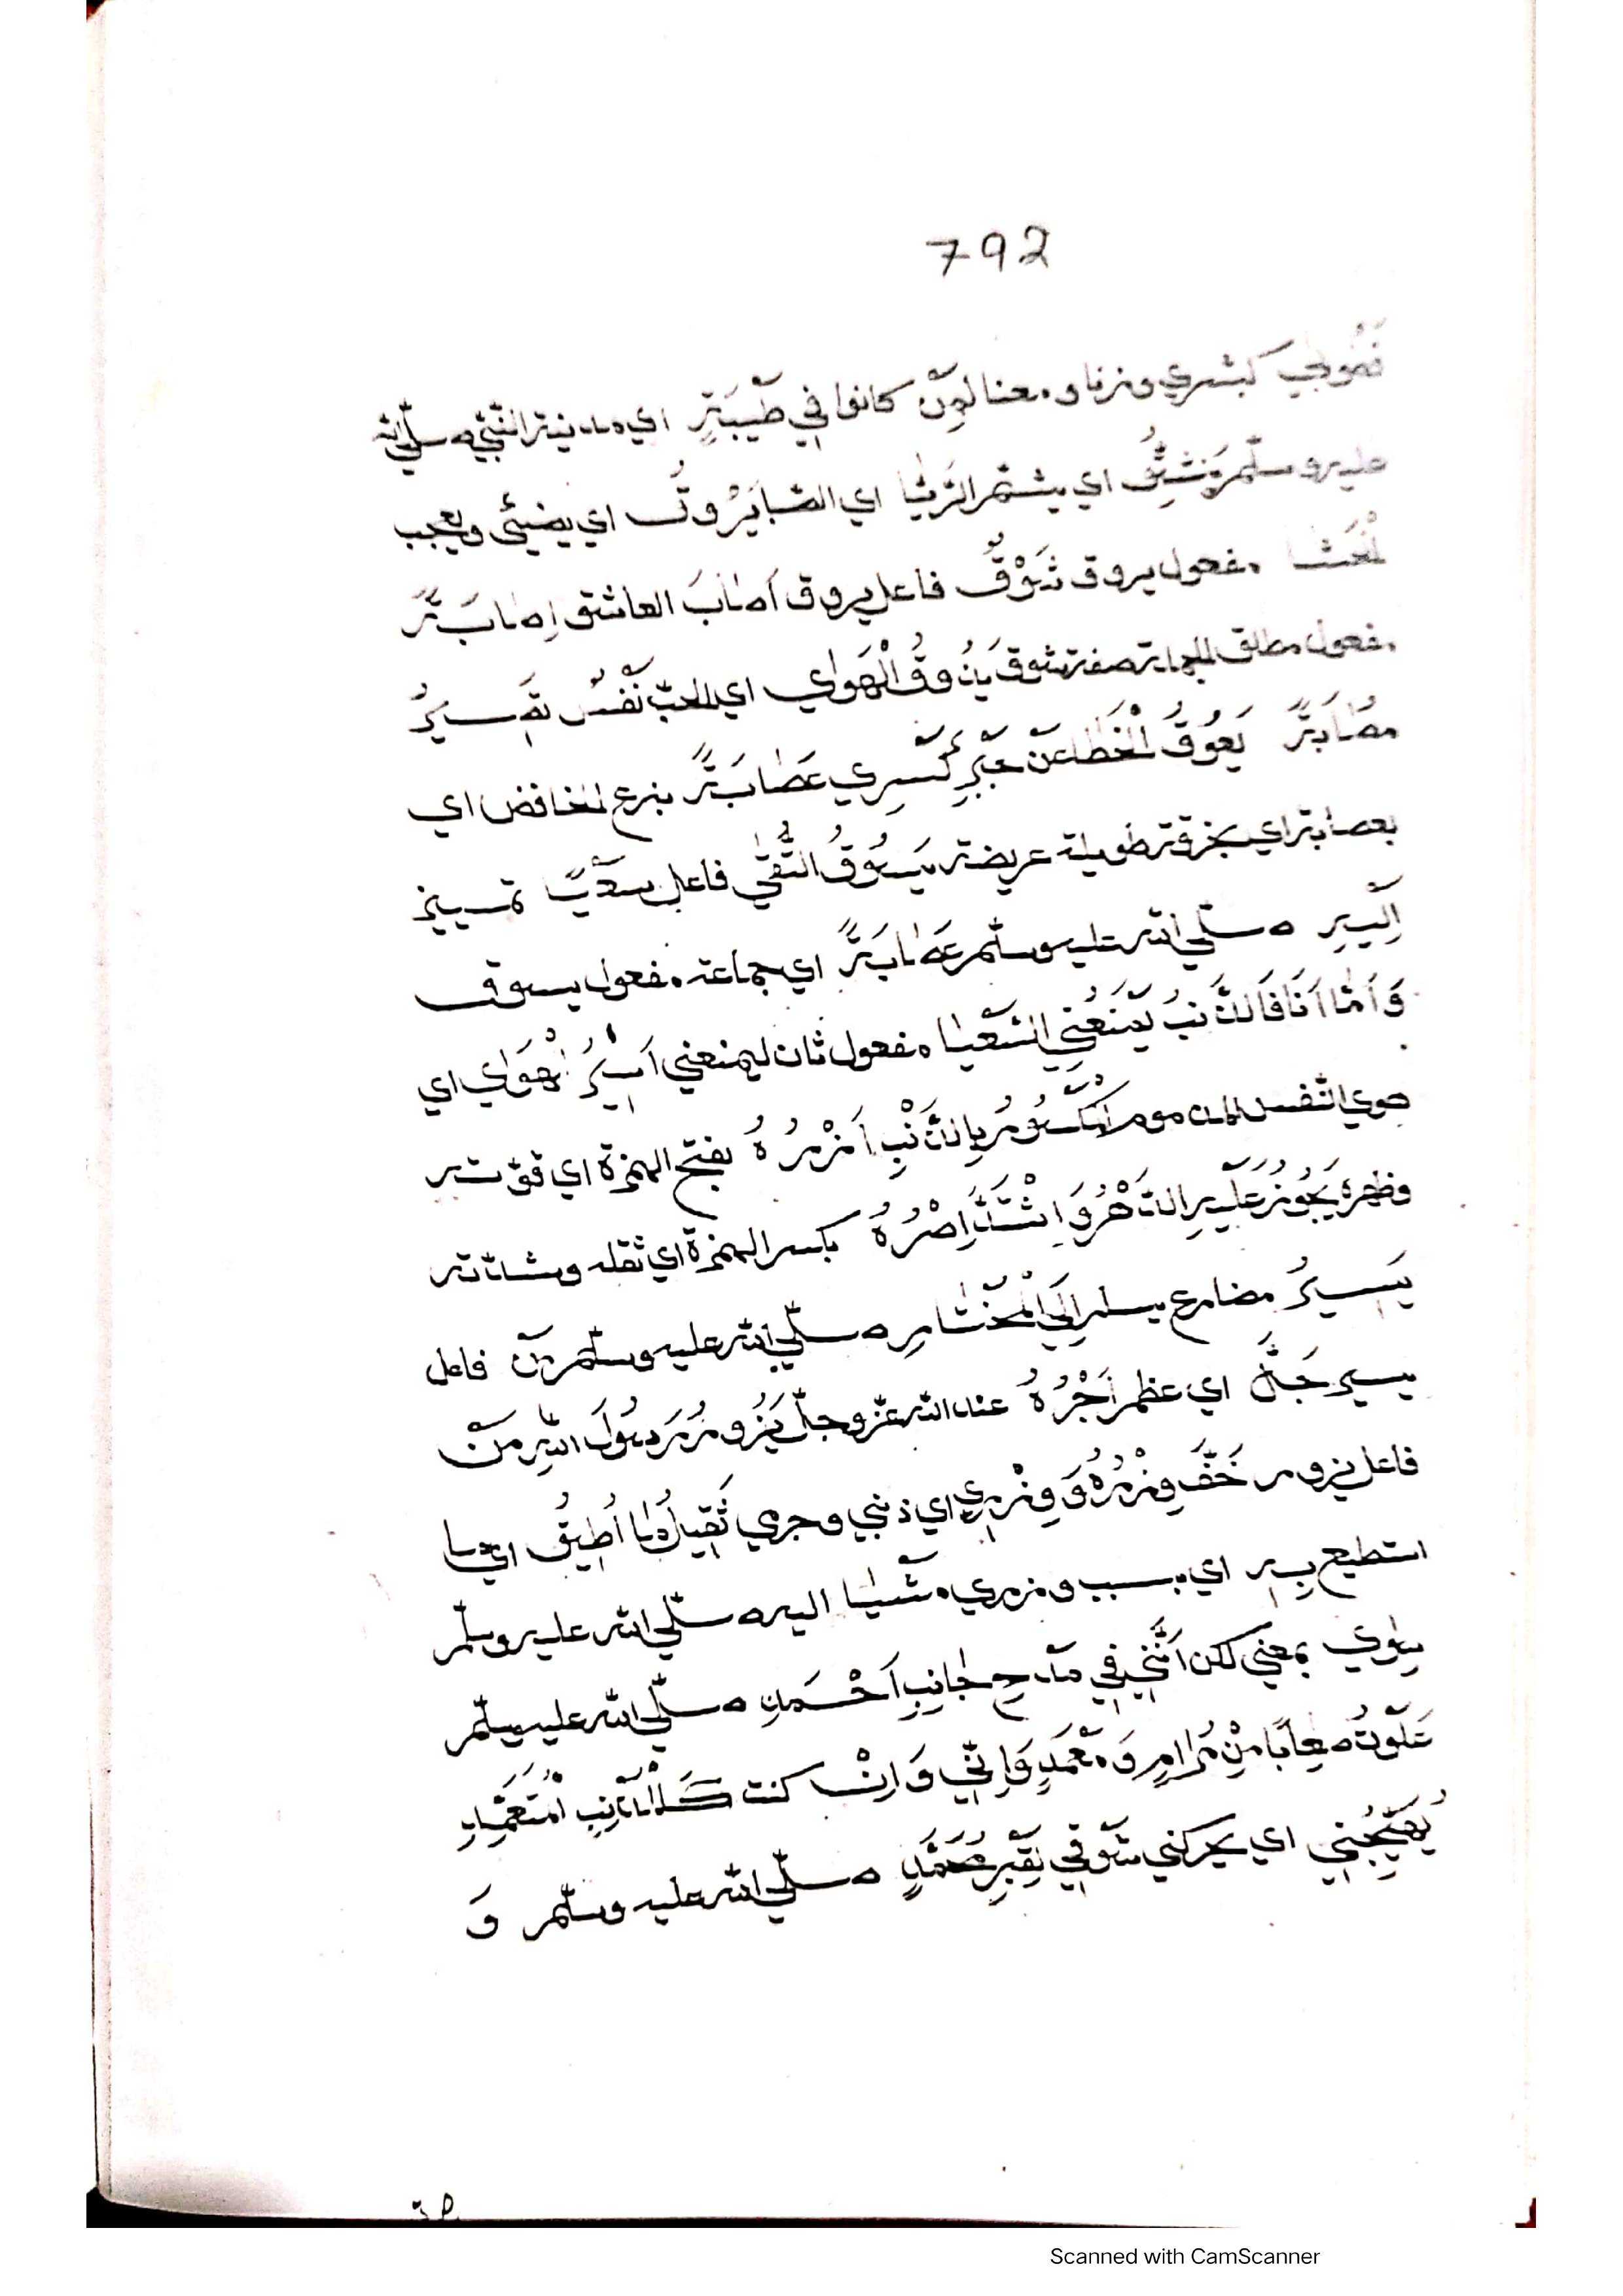 792
كبشري وزنا ومعنا لمن كانوا في طَيْبَةٍ اي مدينة النّبيّ صلّي الله
عليه وسلّم اي يشتمّ الرّيّا اي الصّبا يَرُوقُ اي يضيئ ويعجب
مفعول يروق شَوْقٌ فاعل يروق أَصَابَ العاشق إِصَابَةً
مفعول مطلق الجملة صفة شوق يَذُوقُ الْهَوٰي اي الحبّ نَفْسٌ تَصِيرُ
مُصَابَةً يَعُوقُ الْخَطَا عَنْ كَسْرِي عَصَابَةً بنزع الخافض اي
بعصابة اي بخرقة طويلة عريضة يَسُوقُ التُّقٰي فاعل
اِلَيْهِ صلّي الله عليه وسلّم عَصَابَةً اي جماعة مفعول يسوق
وَأَمَّا أَنَا فَالذَّنْبُ يَمْنَعُنِي السَّعْيَا مفعول ثان ليمنعني أَسِيرُ الْهَوٰي اي
هوي النّفس المذموم بِالذَّنْبِ أَزْرُهُ بفتح الهمزة اي قوّته
وظهره يَجُوزُ عَلَيْهِ الدَّهْرُ وَاشْتَدَّ إِصْرُهُ بكسر الهمزة اي ثقله وشدّته
يَسِيرُ مضارع إِلَي الْمُخْتَارِ صلّي الله عليه وسلّم مَنْ فاعل
يسير جَلَّ اي عظم أَجْرُهُ عند الله عزّ وجلّ يَزُورُ رَسُولَ اللهِ مَنْ
فاعل يزور خَفَّ وِزْرُهُ وَوِزْرِي اي ذنبي وجرمي ثَقِيلٌ مَا أُطِيقُ اي ما
استطيع بِهِ اي بسبب وزري مَشْيَا اليه صلّي الله عليه وسلّم
سِوٰي بمعني لكن أَنَّنِي فِي مَدْحِ جَانِبِ أَحْمَدِ صلّي الله عليه وسلّم
عَلَوْتُ صِعَابًا مِنْ مُرَامٍ وَمَعْمَدِ وَإِنِّي وَإِنْ كنت كَالْمُذْنِبِ الْمُتَعَمِّدِ
يُهَيِّجُنِي اي يحركني شَوْقِي لِقَبْرِ مُحَمَّدٍ صلّي الله عليه وسلّم وَ
Scanned with CamScanner